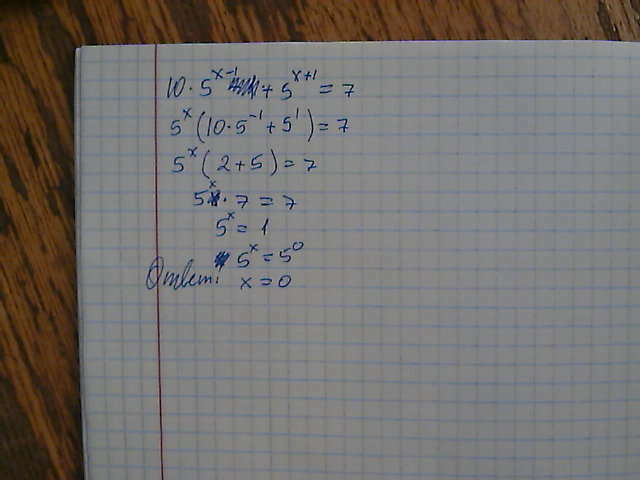 10·5^(x-1) + 5^(x+1) = 7
5^x (10·5^(-1) + 5^1) = 7
5^x (2+5) = 7
5^x · 7 = 7
5^x = 1
5^x = 5^0
Ответ: x = 0